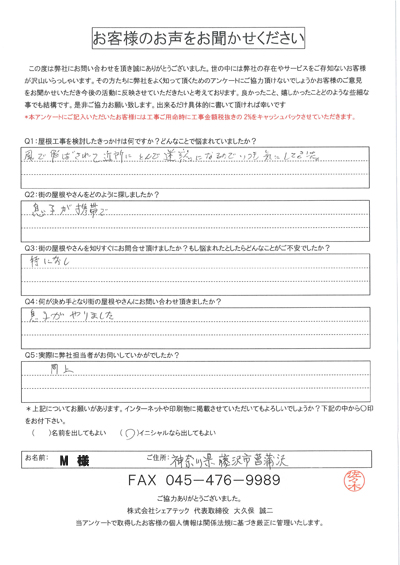 お客様のお声をお聞かせください
この度は弊社にお問い合わせを頂き誠にありがとうございました。世の中には弊社の存在やサービスをご存知ないお客様
が沢山いらっしゃいます。その方たちに弊社をよく知って頂くためのアンケートにご協力頂けないでしょうかお客様のご意見
をお聞かせいただき今後の活動に反映させていただきたいと考えております。良かったこと、嬉しかったことどのような些細な
事でも結構です。是非ご協力お願い致します。出来るだけ具体的に書いて頂ければ幸いです
*本アンケートにご記入いただいたお客様には工事ご用命時に工事金額税抜きの 2%をキャッシュバックさせていただきます。
Q1:屋根工事を検討したきっかけは何ですか?どんなことで悩まれていましたか?
風で飛ばされて近所に
Q2:街の屋根やさんをどのように探しましたか?
息子が携帯で
Q3:街の屋根やさんを知りすぐにお問合せ頂けましたか?もし悩まれたとしたらどんなことがご不安でしたか?
特になし
Q4:何が決め手となり街の屋根やさんにお問い合わせ頂きましたか?
息子がやりました
Q5:実際に弊社担当者がお伺いしていかがでしたか?
同上
*上記についてお願いがあります。インターネットや印刷物に掲載させていただいてもよろしいでしょうか?下記の中から〇印
をお付下さい。
( )名前を出してもよい (〇)イニシャルなら出してもよい
お名前: M 様 ご住所: 神奈川県藤沢市菖蒲沢
FAX 045-476-9989
佐々木
ご協力ありがとうございました。
株式会社シェアテック 代表取締役 大久保 誠二
当アンケートで取得したお客様の個人情報は関係法規に基づき厳正に管理いたします。